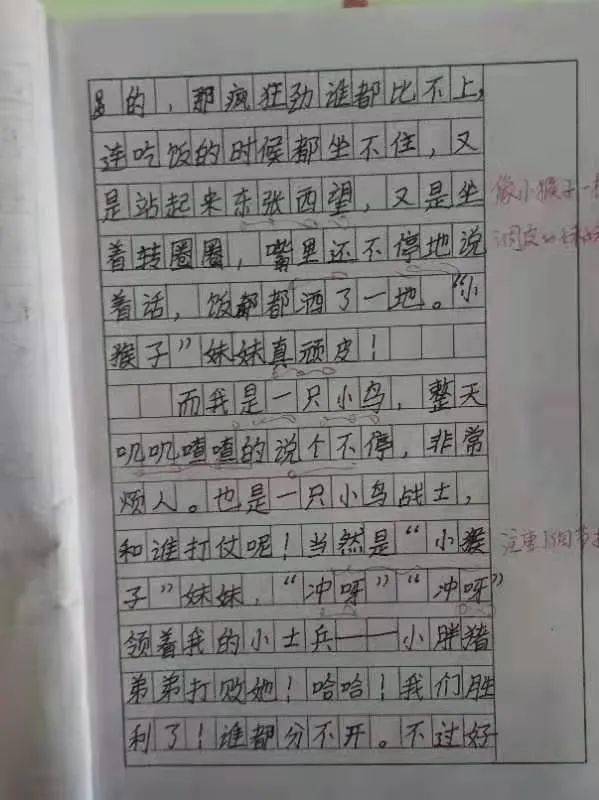 的，那疯狂劲谁都比不上，
连吃饭的时候都坐不住，又
是站起来东张西望，又是坐
着转圈圈，嘴里还不停地说
着话，饭都都洒了一地。“小
猴子”妹妹真顽皮！
而我是一只小鸟，整天
叽叽喳喳的说个不停，非常
烦人。也是一只小鸟战士，
和谁打仗呢！当然是“小猴
子”妹妹，“冲呀”“冲呀”
领着我的小士兵——小胖猪
弟弟打败她！哈哈！我们胜
利了！谁都分不开。不过好
像小猴子一样
调皮
注重细节